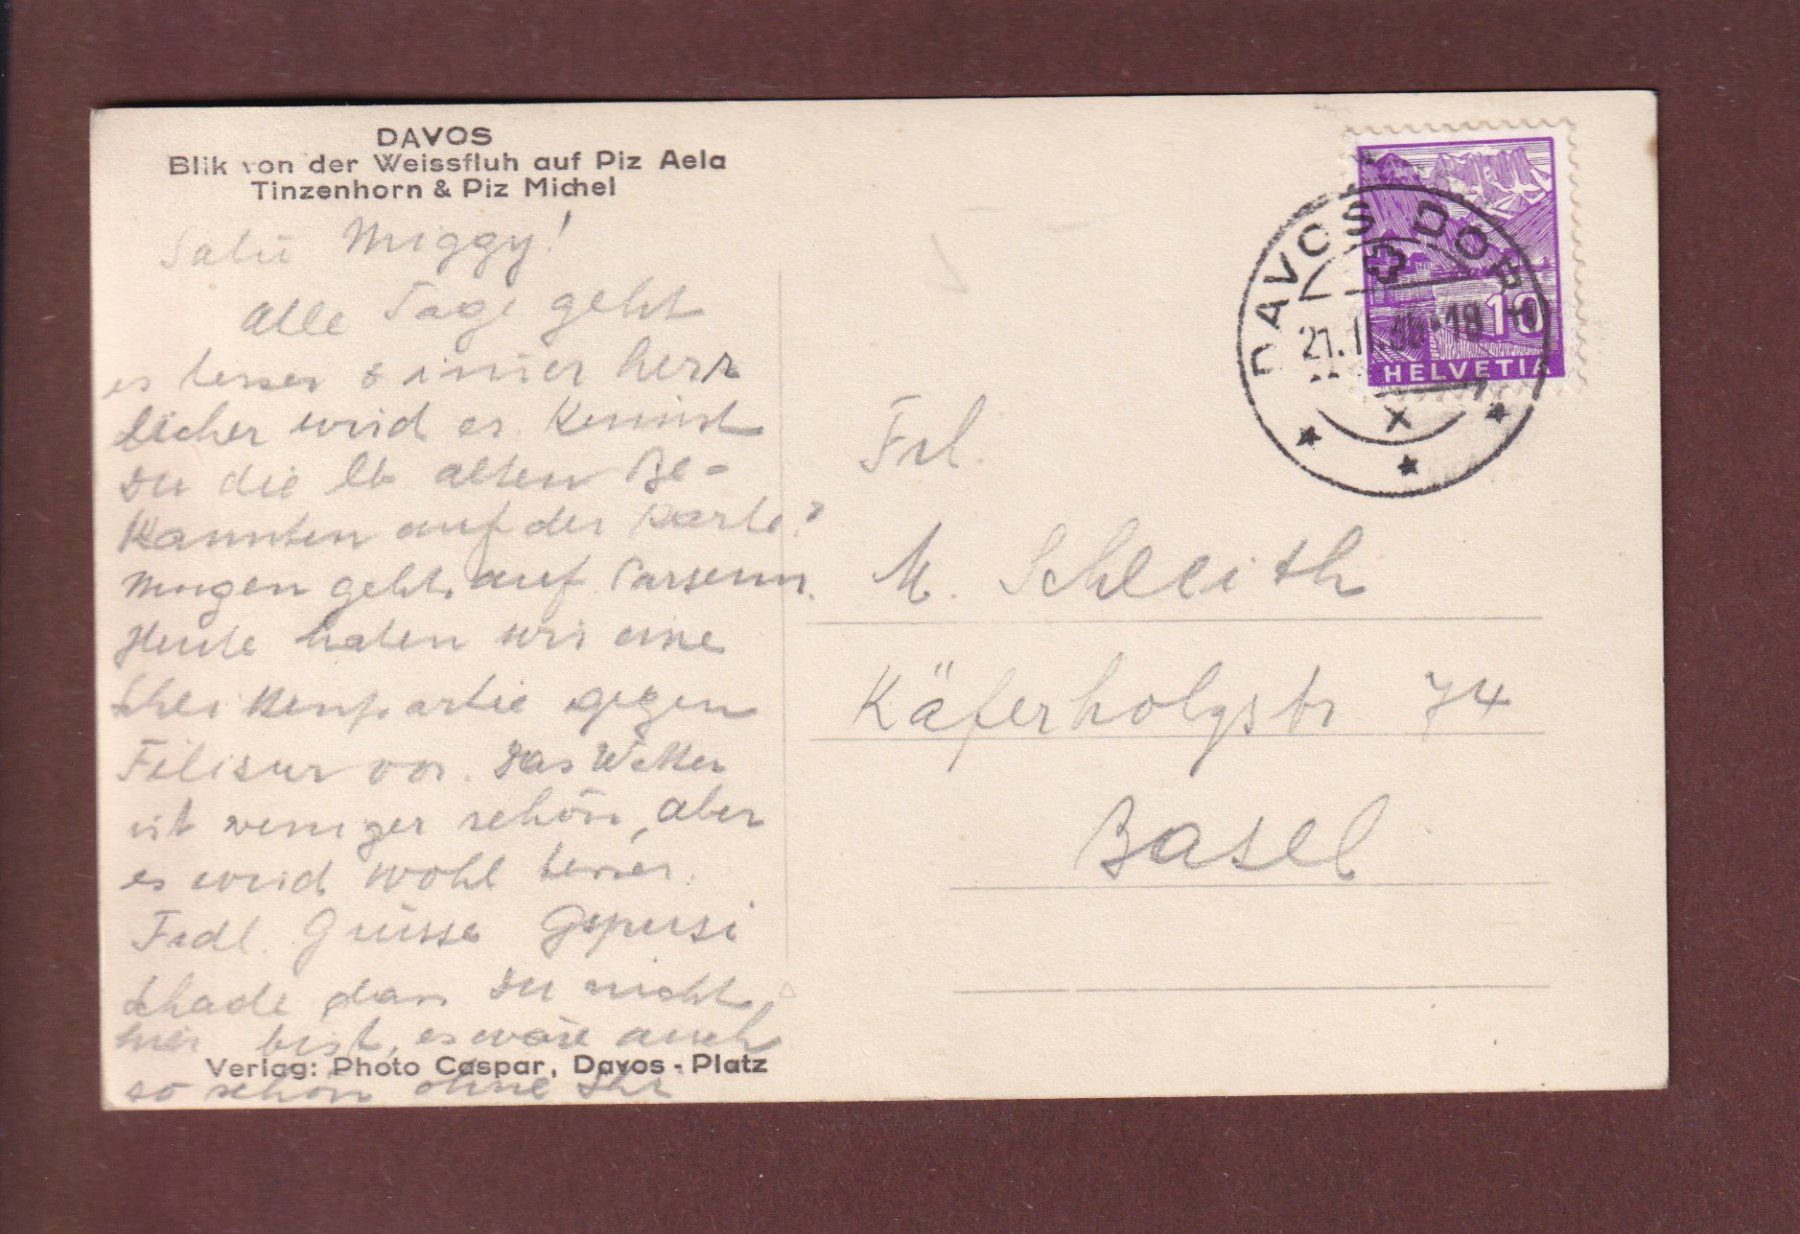 DAVOS
Blik von der Weissfluh auf Piz Aela
Tinzenhorn & Piz Michel
Salü Miggy!
Alle Tage geht
es besser & immer herr
licher wird es. Kennst
Du die lb alten Be-
kannten auf der Karte?
Morgen geht auf Parsenn.
Heute haben wir eine
gegen
Filisur vor. Das Wetter
ist weniger schön, aber
es wird wohl besser.
Frdl. Grüsse
Schade dass Du nicht
hier bist, es wäre auch
so schön ohne
Verlag: Photo Caspar, Davos - Platz
DAVOS DORF
21.II.36-18
HELVETIA
10
Frl.
M. Schleith
Käferholzstr 74
Basel